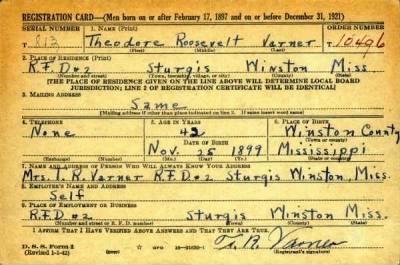 REGISTRATION CARD—(Men born on or after February 17, 1897 and on or before December 31, 1921)
SERIAL NUMBER 1. NAME (Print) ORDER NUMBER
T 813 Theodore Roosevelt Varner T10496
(First) (Middle) (Last)
2. PLACE OF RESIDENCE (Print)
R.F.D#2 Sturgis Winston Miss
(Number and street) (Town, township, village, or city) (County) (State)
[THE PLACE OF RESIDENCE GIVEN ON THE LINE ABOVE WILL DETERMINE LOCAL BOARD
JURISDICTION; LINE 2 OF REGISTRATION CERTIFICATE WILL BE IDENTICAL]
3. MAILING ADDRESS
Same
(Mailing address if other than place indicated on line 2. If same insert word same)
4. TELEPHONE 5. AGE IN YEARS 6. PLACE OF BIRTH
None 42 Winston County
DATE OF BIRTH (Town or county)
Nov. 25 1899 Mississippi
(Exchange) (Number) (Mo.) (Day) (Yr.) (State or country)
7. NAME AND ADDRESS OF PERSON WHO WILL ALWAYS KNOW YOUR ADDRESS
Mrs. T. R. Varner R.F.D#2 Sturgis Winston, Miss.
8. EMPLOYER'S NAME AND ADDRESS
Self
9. PLACE OF EMPLOYMENT OR BUSINESS
R.F.D#2 Sturgis Winston Miss.
(Number and street or R. F. D. number) (Town) (County) (State)
I AFFIRM THAT I HAVE VERIFIED ABOVE ANSWERS AND THAT THEY ARE TRUE.
D. S. S. Form 1
(Revised 1-1-42) GPO T. R. Varner
(Registrant's signature)